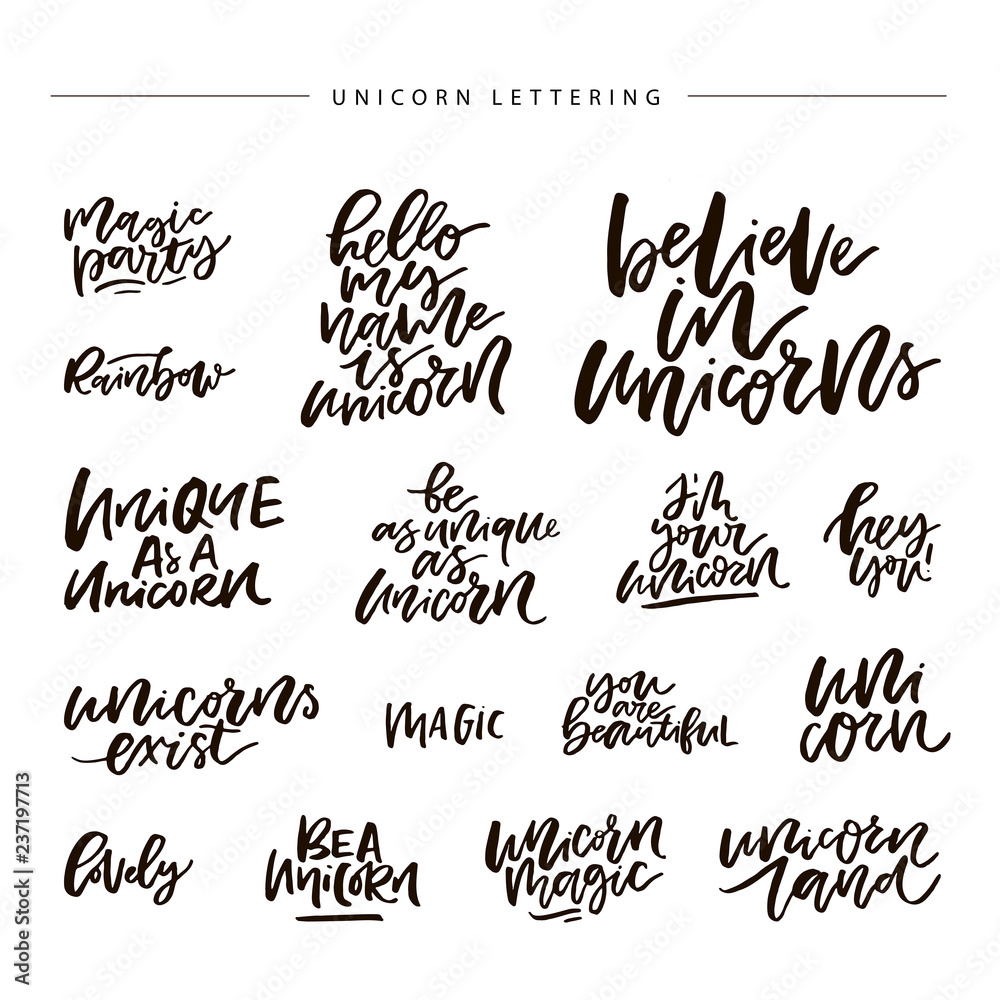 UNICORN LETTERING
magic
party
hello
my
name
is
unicorn
believe
in
unicorns
Rainbow
UNIQUE
AS A
UNICORN
be
as unique
as
unicorn
I'm
your
unicorn
hey
you!
unicorns
exist
MAGIC
you
are
beautiful
uni
corn
lovely
BE A
UNICORN
unicorn
magic
unicorn
land
Adobe Stock | #237197713